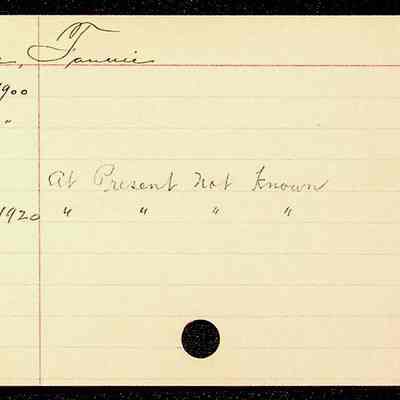 , Fannie
1900
"
At Present Not Known
1920 " " " "